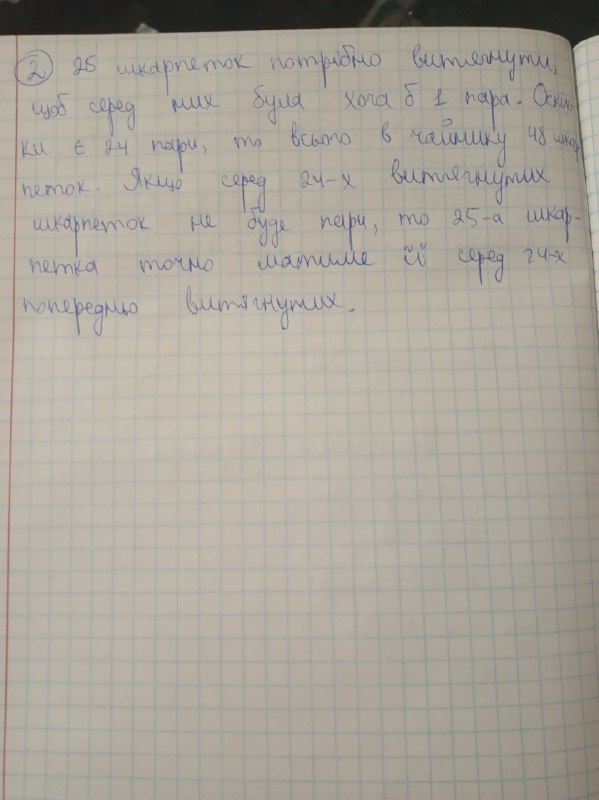 2 25 шкарпеток потрібно витягнути,
щоб серед них була хоча б 1 пара. Оскіль-
ки є 24 пари, то всього в чайнику 48 шкар
петок. Якщо серед 24-х витягнутих
шкарпеток не буде пари, то 25-а шкар-
петка точно матиме її серед 24-х
попередньо витягнутих.